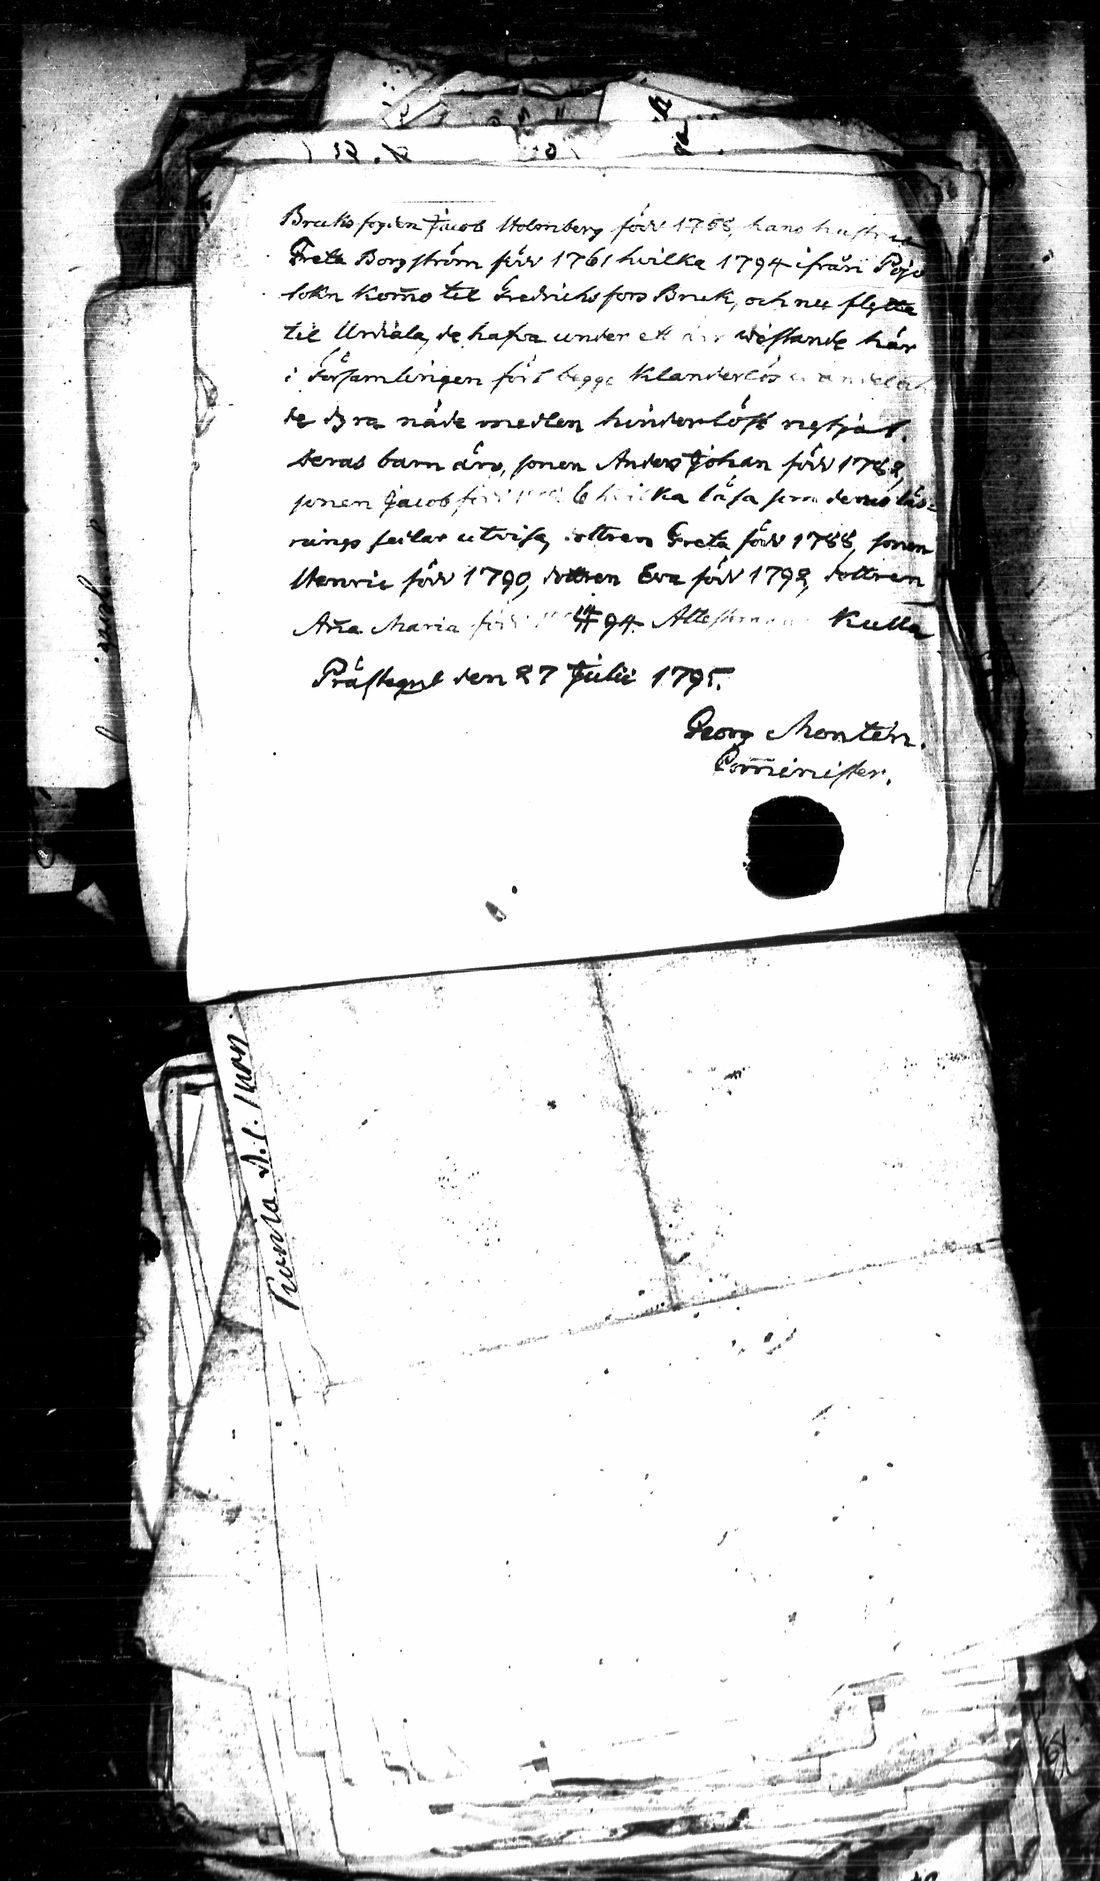 Bruks fogden Jacob Holmberg född 1758, hans hustru
Greta Borgström född 1761 hvilka 1794 ifrån Pojo
Sokn kom̄o til Fredrichsfors Bruk, och nu flytta
til Urdiala, de hafva under ett års wistande här
i Församlingen fört begge Klanderlös
de dyra nåde medlen hinderlöst nytjat.
deras barn äro, sonen Anders Johan född 1782,
sonen Jacob född hvilka läsa som deras läs-
nings sedlar utvisa, dottren Greta född 1788, sonen
Henric född 1790, dottren Eva född 1792, dottren
An̄a Maria född 94. Attesterar Kulla
Prästegård den 27 Julii 1795.
Georg Montén.
Com̄inister.